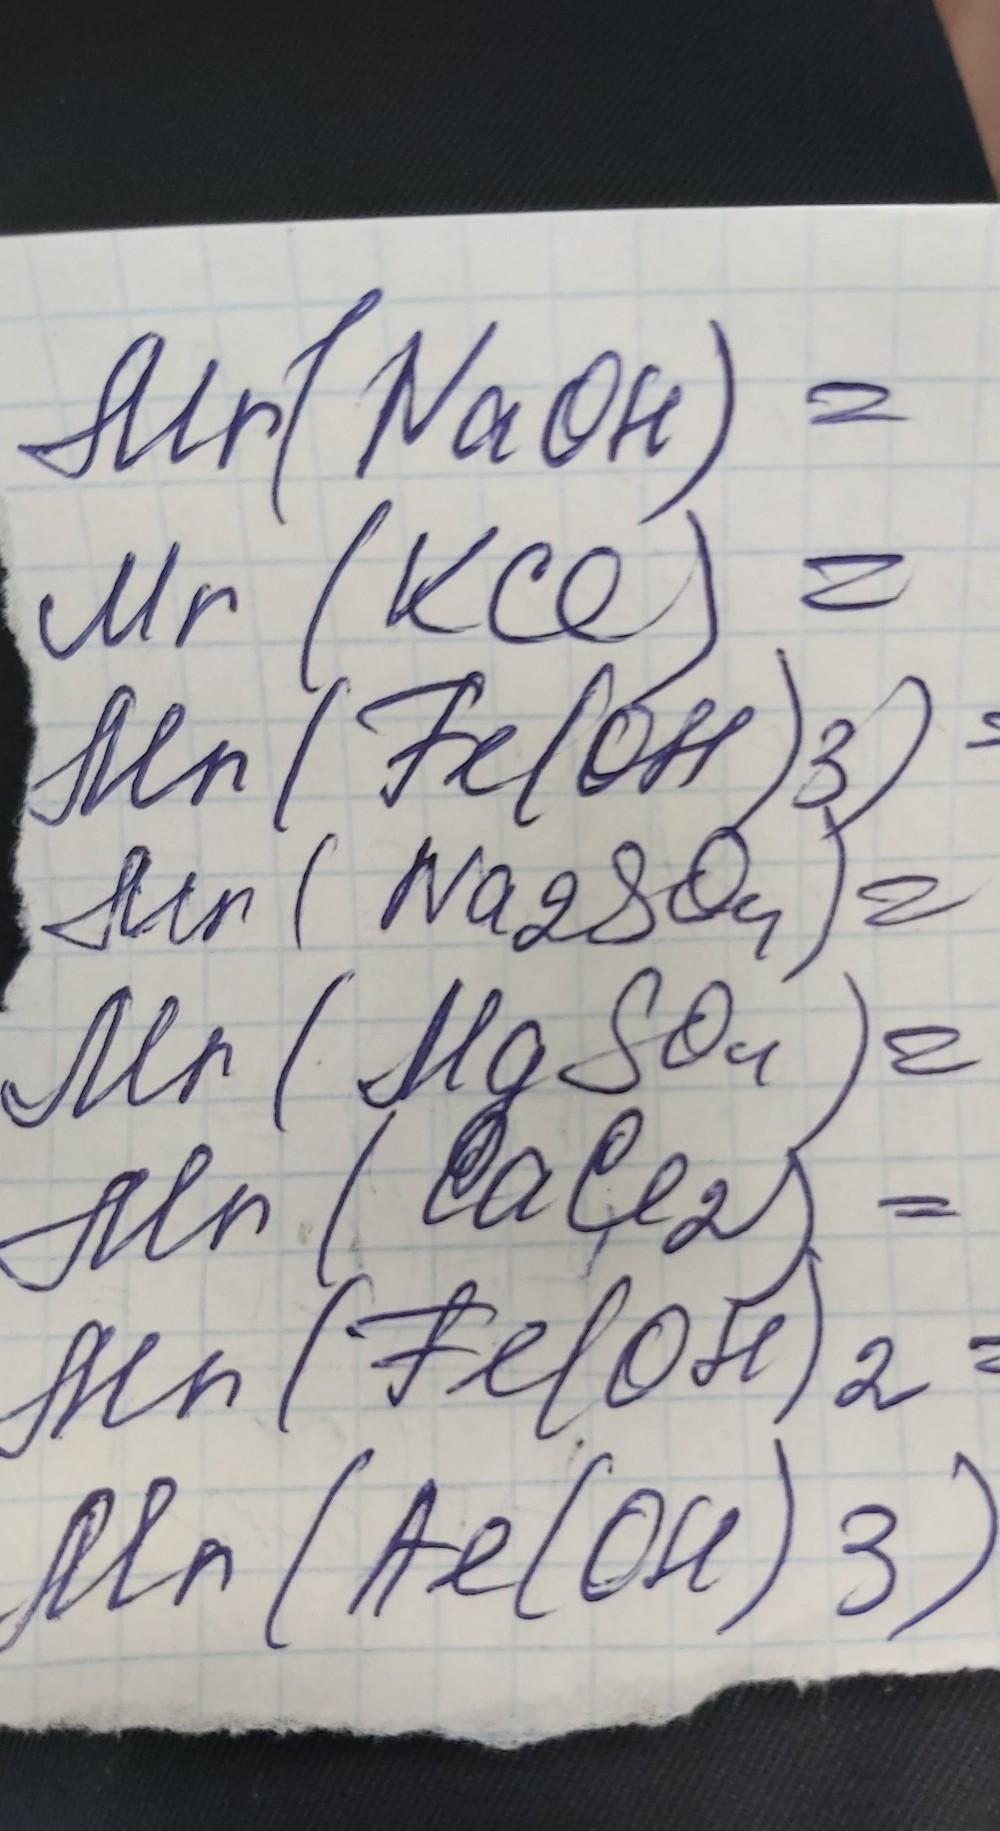 Mr(NaOH) =
Mr (KCl) =
Mr (Fe(OH)3) =
Mr ( Na2SO4) =
Mr ( MgSO4) =
Mr ( CaCl2) =
Mr (Fe(OH)2 =
Mr (Al(OH)3)